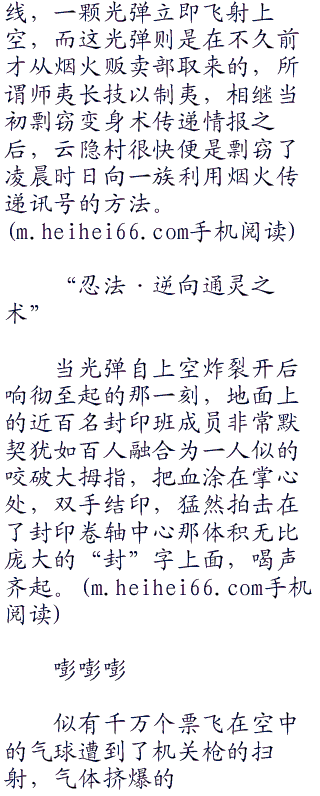 线，一颗光弹立即飞射上
空，而这光弹则是在不久前
才从烟火贩卖部取来的，所
谓师夷长技以制夷，相继当
初剽窃变身术传递情报之
后，云隐村很快便是剽窃了
凌晨时日向一族利用烟火传
递讯号的方法。
(m.heihei66.com手机阅读)
“忍法·逆向通灵之
术”
当光弹自上空炸裂开后
响彻至起的那一刻，地面上
的近百名封印班成员非常默
契犹如百人融合为一人似的
咬破大拇指，把血涂在掌心
处，双手结印，猛然拍击在
了封印卷轴中心那体积无比
庞大的“封”字上面，喝声
齐起。(m.heihei66.com手机
阅读)
嘭嘭嘭
似有千万个票飞在空中
的气球遭到了机关枪的扫
射，气体挤爆的